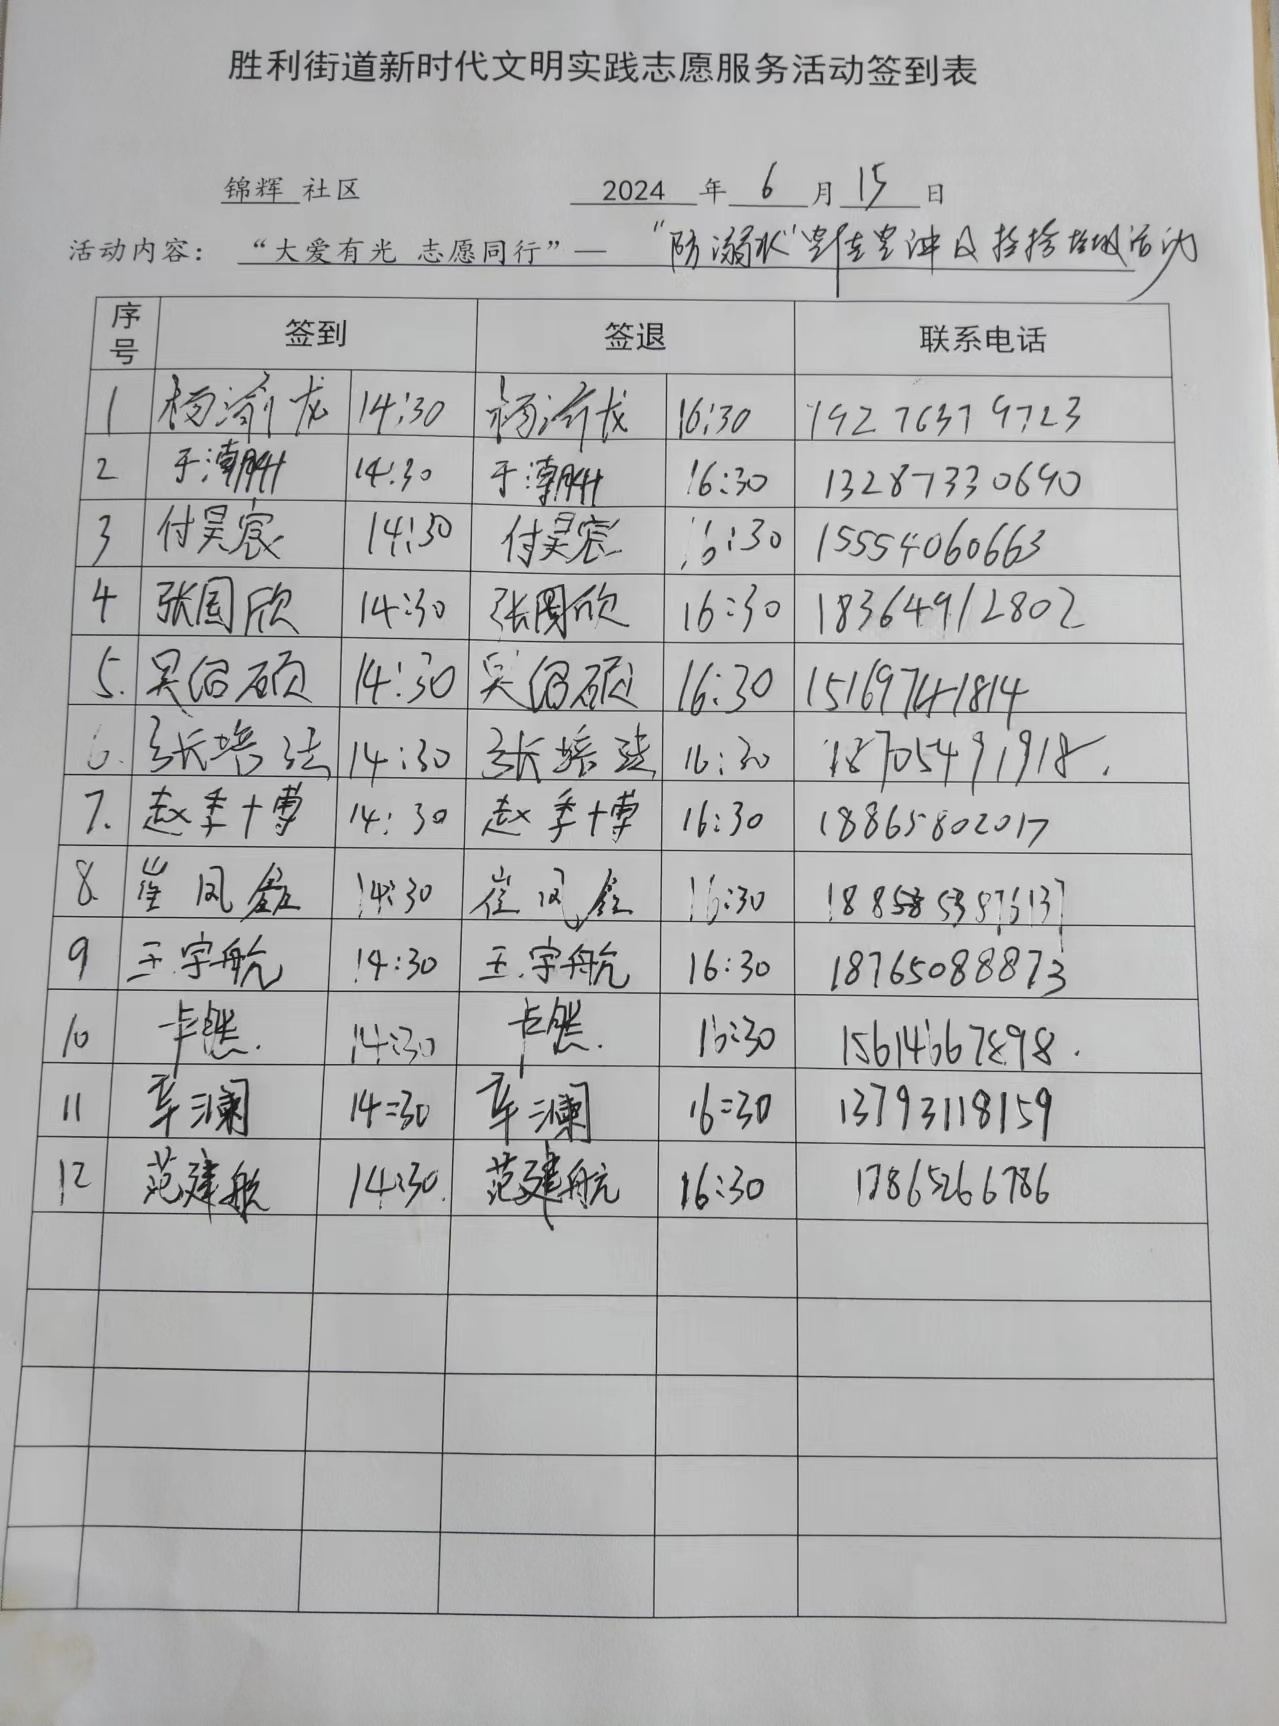 胜利街道新时代文明实践志愿服务活动签到表
锦辉 社区 2024 年 6 月 15 日
活动内容： “大爱有光 志愿同行”— “防溺水” 及 捡拾垃圾活动
序号 签到 签退 联系电话
1 杨渝龙 14:30 杨渝龙 16:30 19276379723
2 于潮州 14:30 于潮州 16:30 13287330690
3 付昊宸 14:30 付昊宸 16:30 15554060663
4 张国欣 14:30 张国欣 16:30 18364912802
5. 吴佀硕 14:30 吴佀硕 16:30 15169741814
6. 张培法 14:30 张培法 16:30 18705491918.
7. 赵季十博 14:30 赵季十博 16:30 18865802017
8. 崔凤鑫 14:30 崔凤鑫 16:30
9 王宇航 14:30 王宇航 16:30 18765088873
10 卡然. 14:30 卡然. 16:30 15614667898.
11 车澜 14:30 车澜 16:30 13793118159
12 范建航 14:30. 范建航 16:30 17865266786